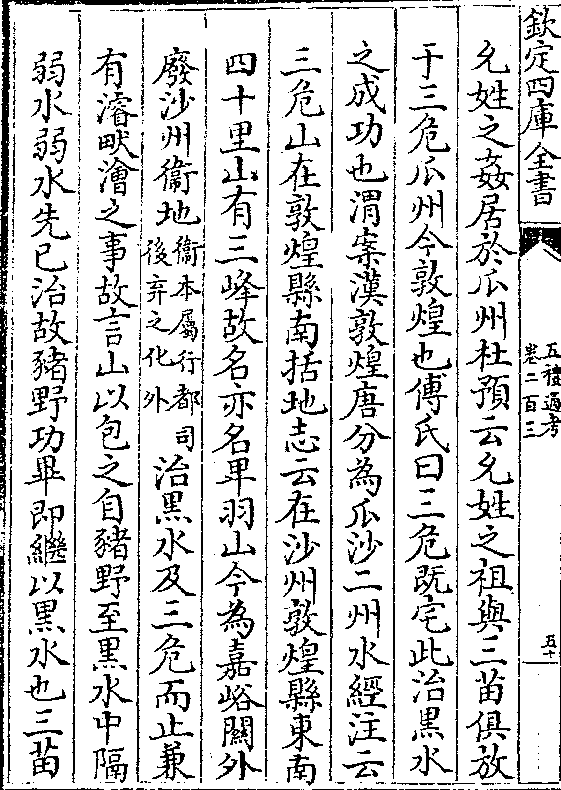 欽定四庫全書
五禮通考
卷二百三
五十
允姓之姦居於瓜州杜預云允姓之祖與三苗俱放
于三危瓜州今敦煌也傅氏曰三危既宅此治黑水
之成功也渭案漢敦煌唐分為瓜沙二州水經注云
三危山在敦煌縣南括地志云在沙州敦煌縣東南
四十里山有三峰故名亦名卑羽山今為嘉峪關外
廢沙州衞地衞本屬行都司後弃之化外治黑水及三危而止兼
有濬畎澮之事故言山以包之自豬野至黑水中隔
弱水弱水先已治故豬野功畢即繼以黑水也三苗